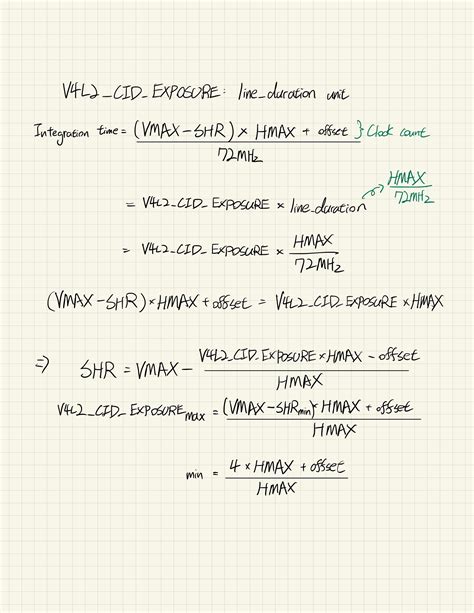 V4L2_CID_EXPOSURE: line_duration unit
Integration time = ((VMAX-SHR) × HMAX + offset) / 72MHz } Clock count
= V4L2_CID_EXPOSURE × line_duration → HMAX / 72MHz
= V4L2_CID_EXPOSURE × HMAX / 72MHz
(VMAX-SHR)×HMAX + offset = V4L2_CID_EXPOSURE × HMAX
⇒ SHR = VMAX - (V4L2_CID_EXPOSURE × HMAX - offset) / HMAX
V4L2_CID_EXPOSURE max = ((VMAX-SHRmin)× HMAX + offset) / HMAX
min = (4 × HMAX + offset) / HMAX